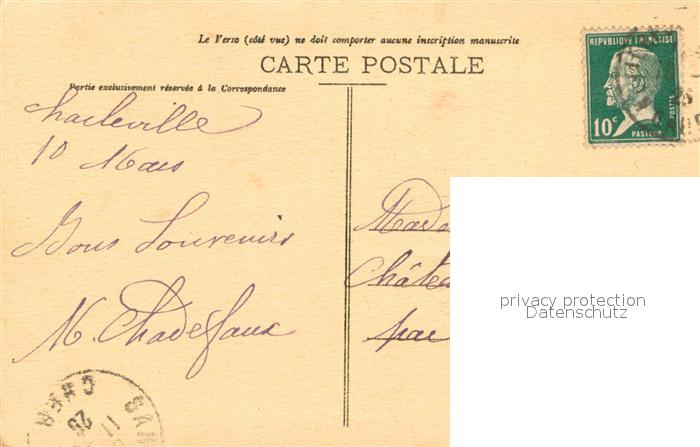 Le Verso (côté vue) ne doit comporter aucune inscription manuscrite
CARTE POSTALE
Partie exclusivement réservée à la Correspondance
REPVBLIQVE FRANÇAISE
POSTES
10c
PASTEUR
Charleville
10 Mars
Bons Souvenirs
M. Chadeffaux
Mada
Château
par
privacy protection
Datenschutz
25
11